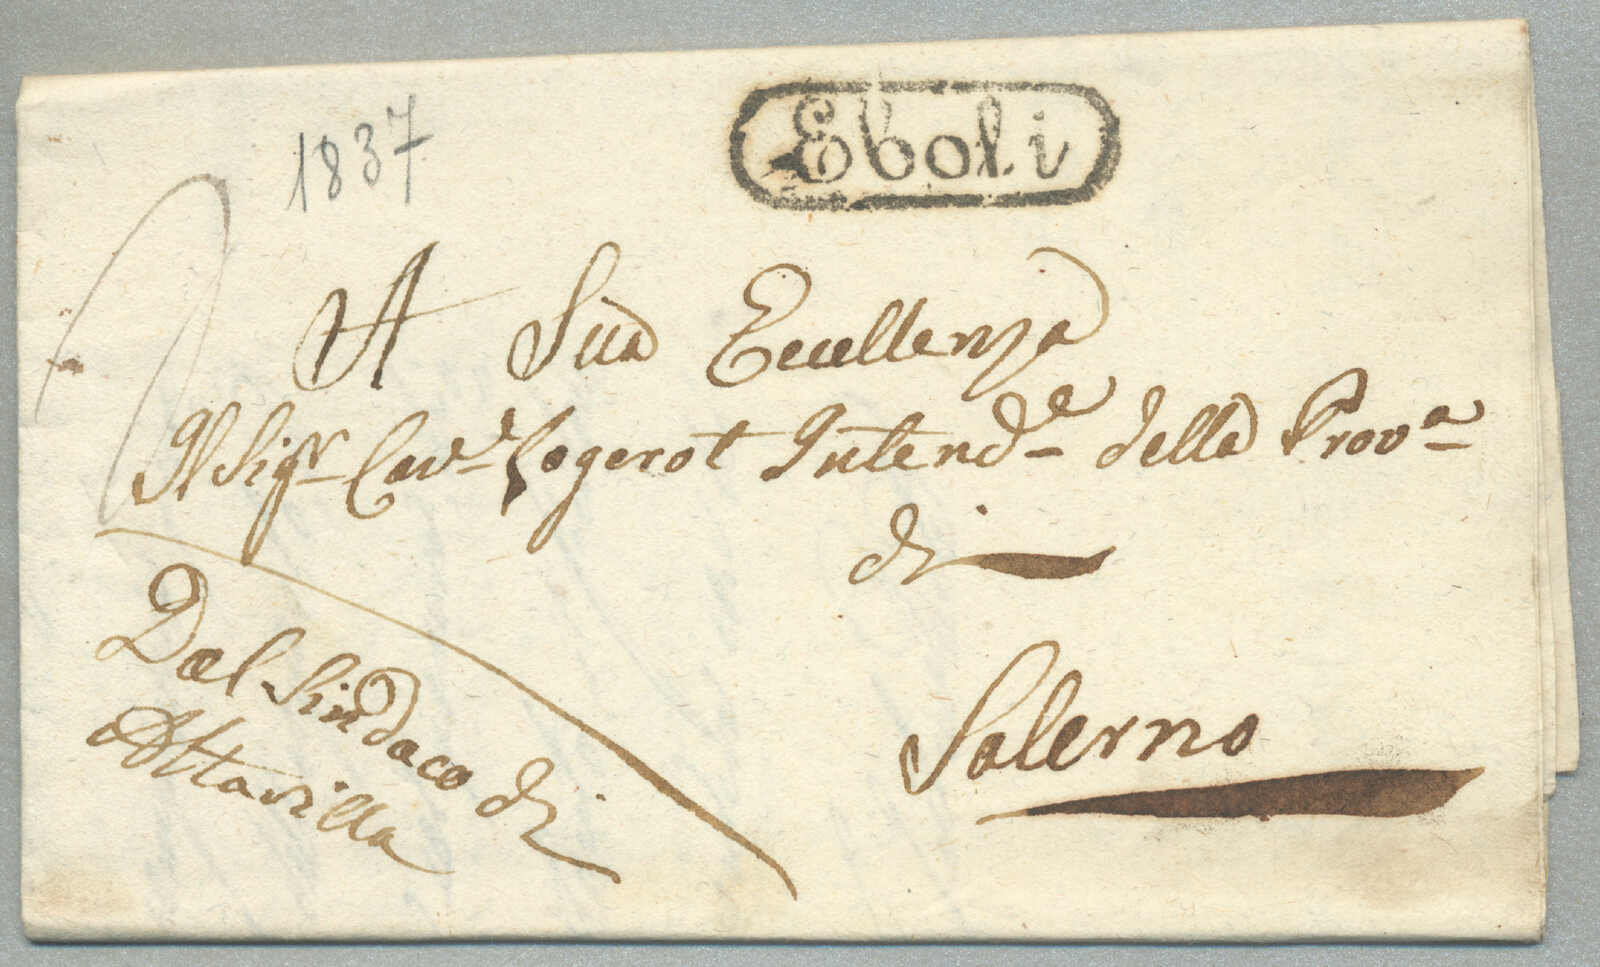 1837
Eboli
A Sua Eccellenza
Il Sigr Cave Logerot Intende della Prova
di
Salerno
Dal Sindaco di
Altavilla